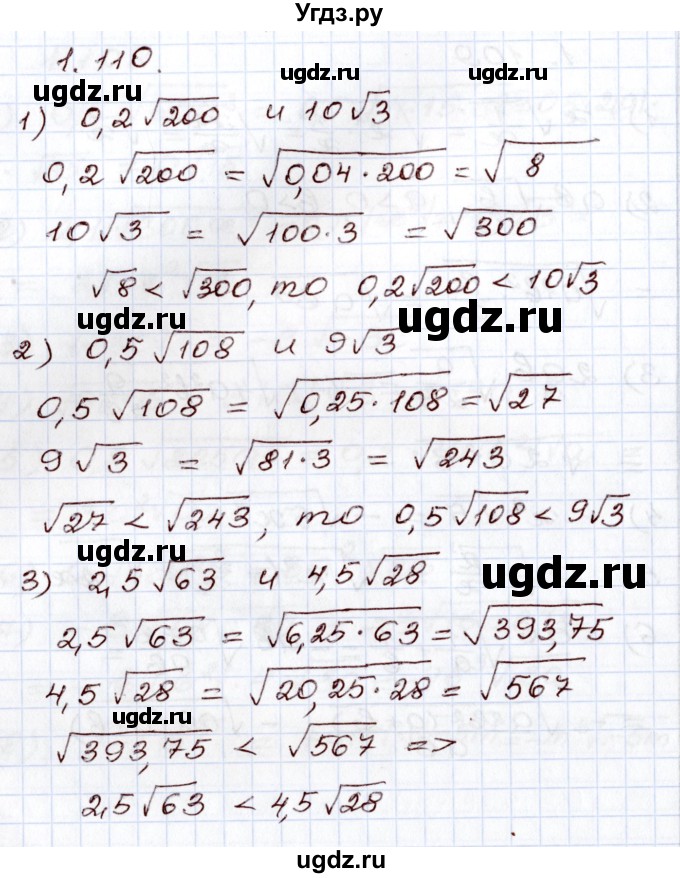 Угдз.ру
1.110.
ugdz.ru ugdz.ru ugdz.ru
1) 0,2√200 и 10√3
0,2√200 = √0,04·200 = √8
10√3 = √100·3 = √300
√8 < √300, то 0,2√200 < 10√3
ugdz.ru ugdz.ru
2) 0,5√108 и 9√3
0,5√108 = √0,25·108 = √27
9√3 = √81·3 = √243
√27 < √243, то 0,5√108 < 9√3
ugdz.ru ugdz.ru
3) 2,5√63 и 4,5√28
2,5√63 = √6,25·63 = √393,75
4,5√28 = √20,25·28 = √567
ugdz.ru
√393,75 < √567 =>
2,5√63 < 4,5√28
ugdz.ru